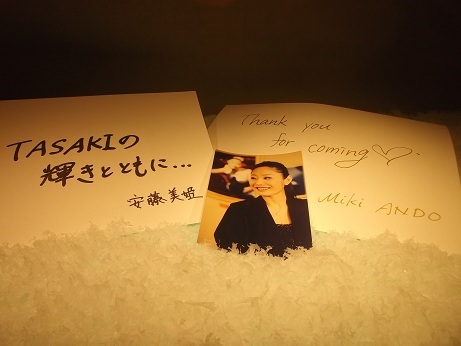 TASAKIの
輝きとともに...
安藤美姫
Thank you
for coming♡.
Miki ANDO